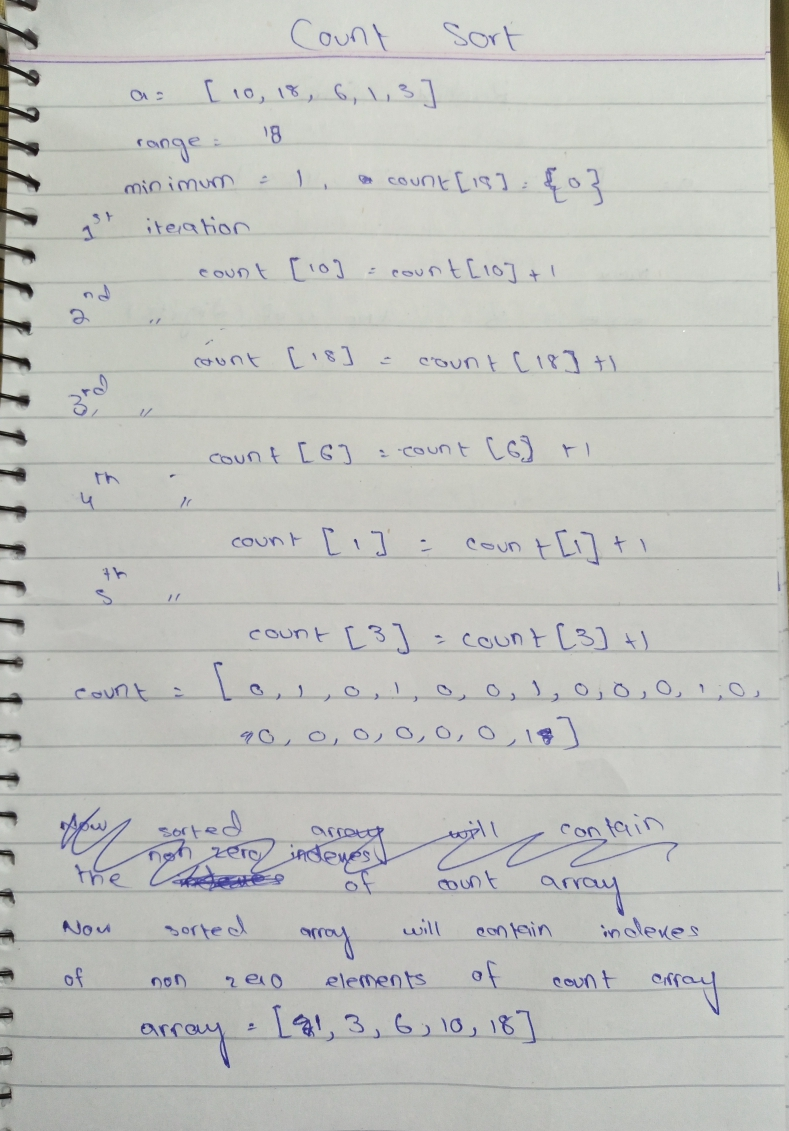 Count Sort
a = [10, 18, 6, 1, 3]
range = 18
minimum = 1, count[18] = {0}
1st iteration
count [10] = count[10] + 1
2nd "
count [18] = count [18] +1
3rd, "
count [6] = count [6] +1
4th "
count [1] = count[1] + 1
5th "
count [3] = count [3] +1
count = [0, 1, 0, 1, 0, 0, 1, 0, 0, 0, 1, 0,
0, 0, 0, 0, 0, 0, 1]
Now sorted array will contain
non zero indexes
the of count array
Now sorted array will contain indexes
of non zero elements of count array
array = [1, 3, 6, 10, 18]